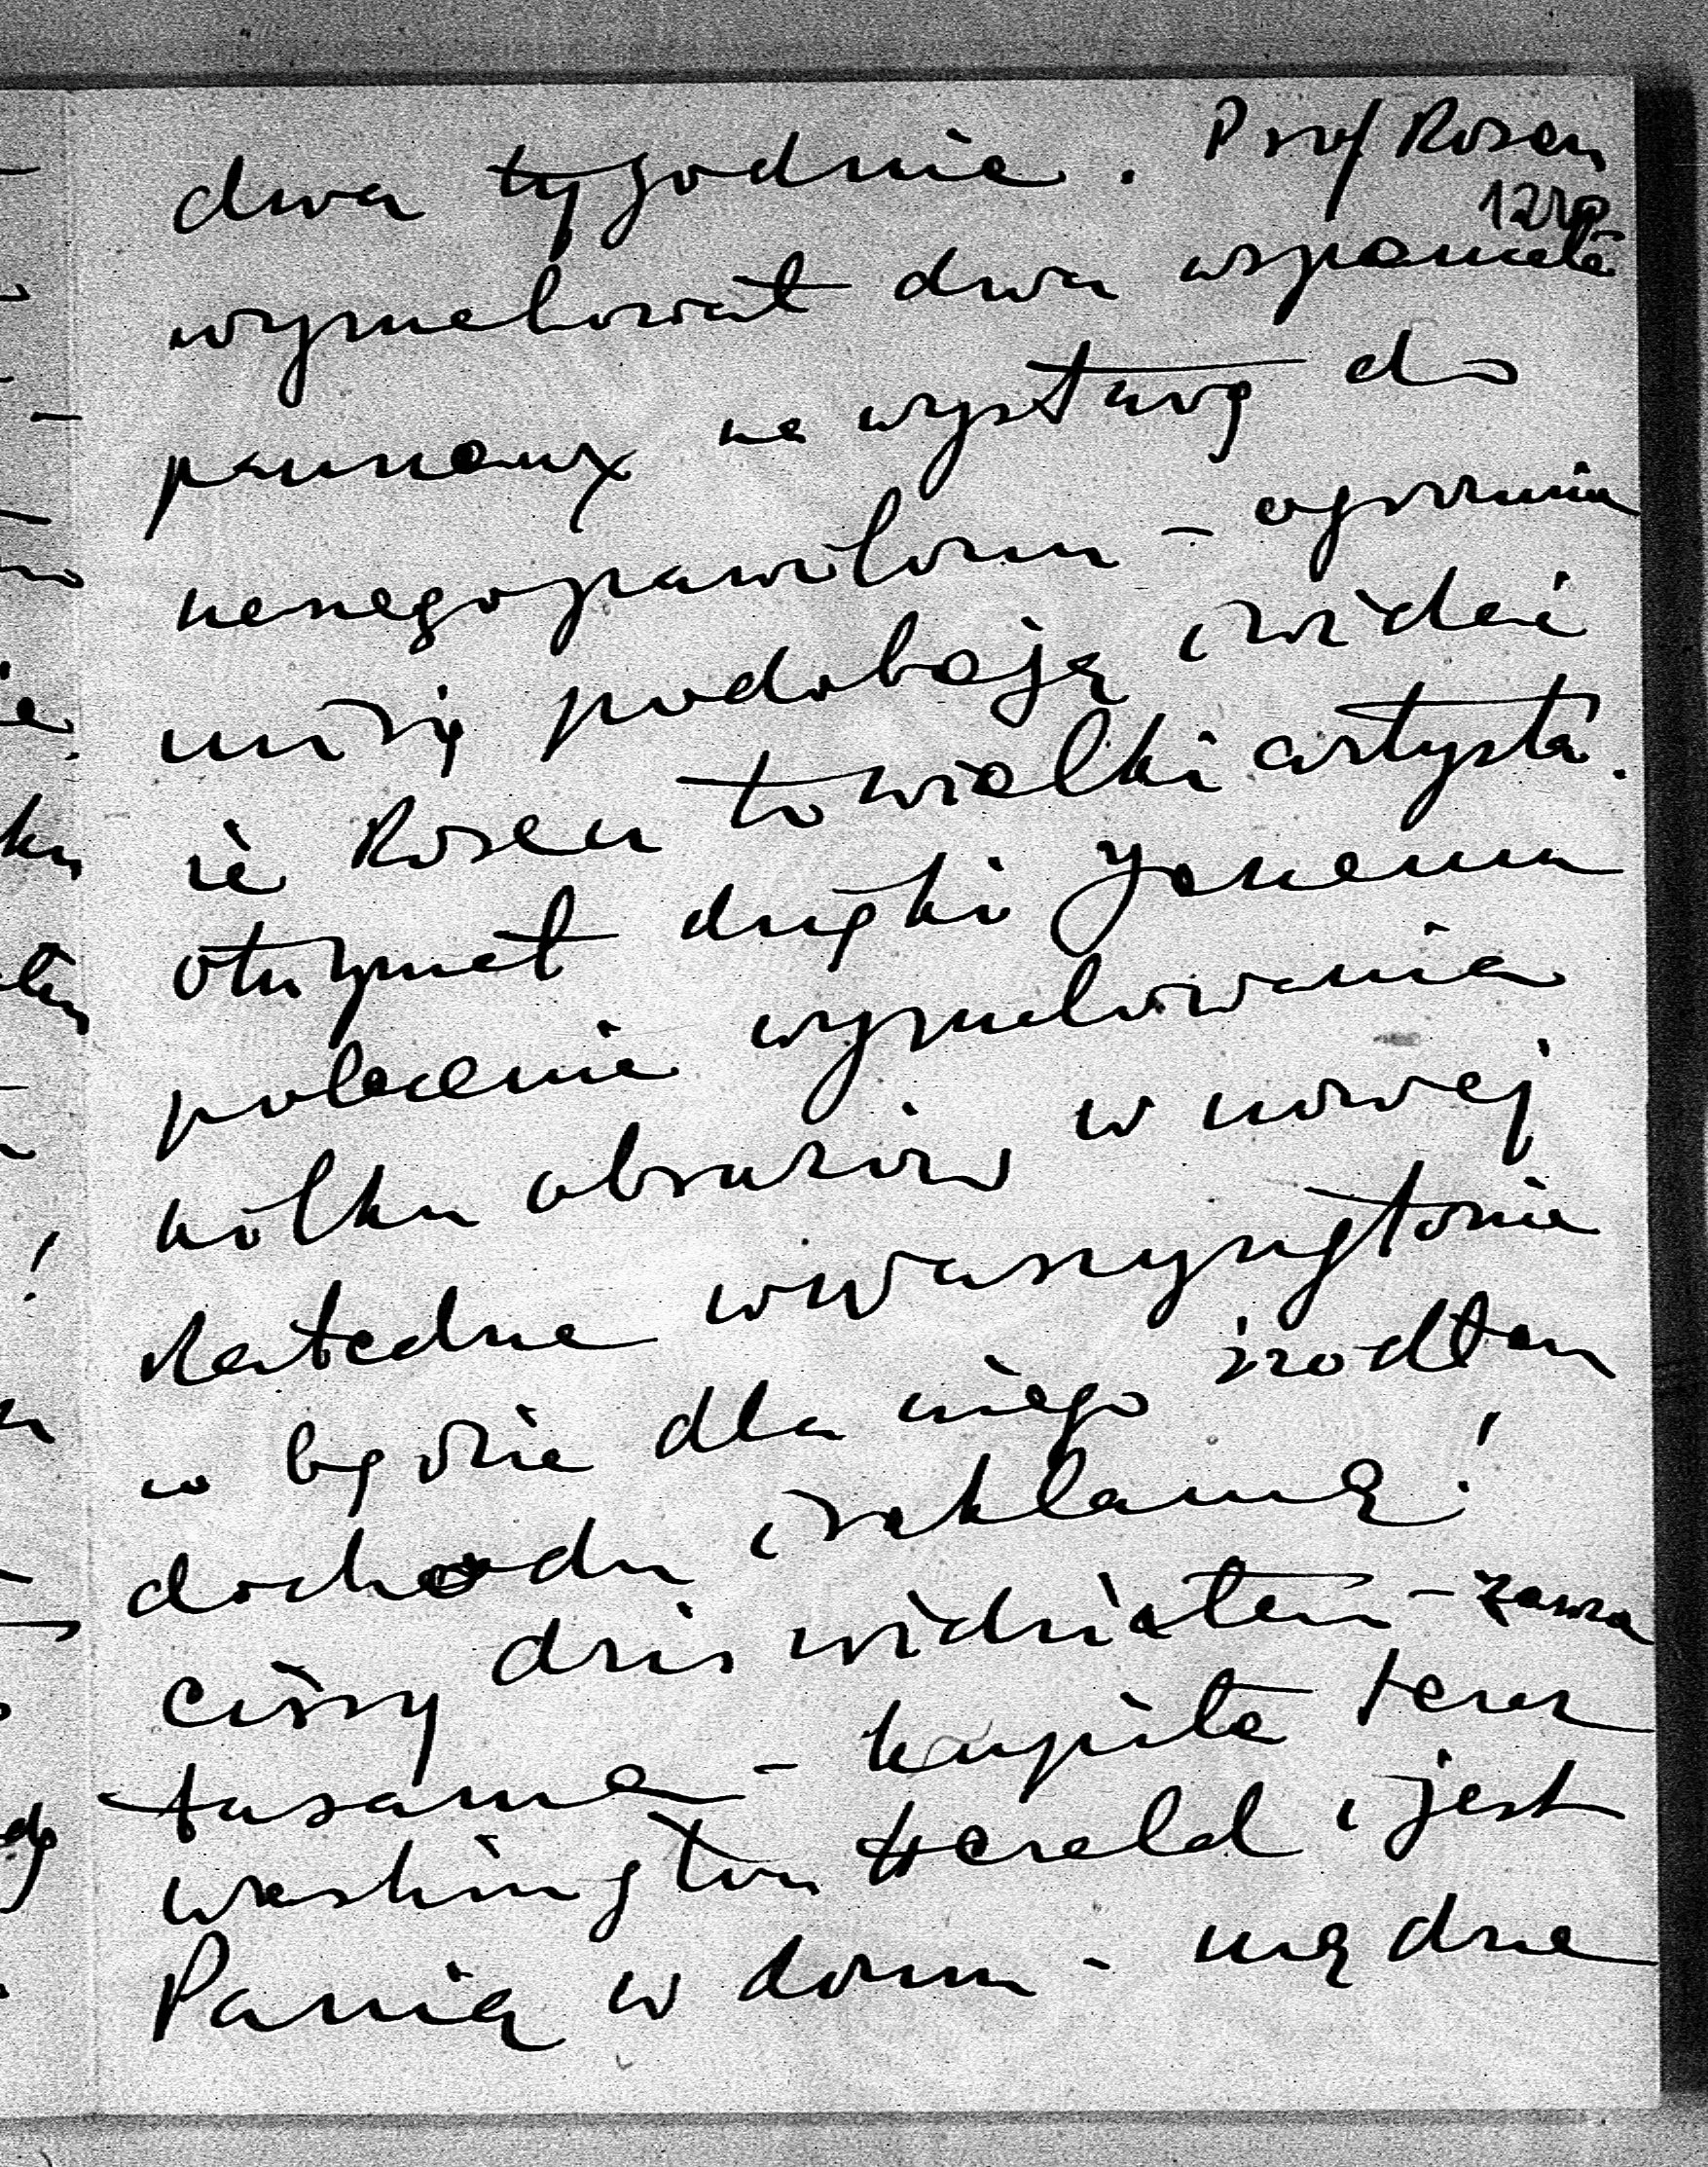 dwa tygodnie. Prof Rosen
12rp
wymalował dwa wspaniałe
panneaux na wystawę do
naszego pawilonu - ogromnie
mi się podobają i widać
że Rosen to wielki artysta.
otrzymał dzięki Janemu
polecenie wymalowania
kilku obrazów w nowej
Katedrze w Waszyngtonie
co będzie dla niego źródłem
dochodu i reklamą!
Cissy dziś widziałem - zawsze
ta sama - kupiła teraz
Washington Herald i jest
Panią w domu - mądrze